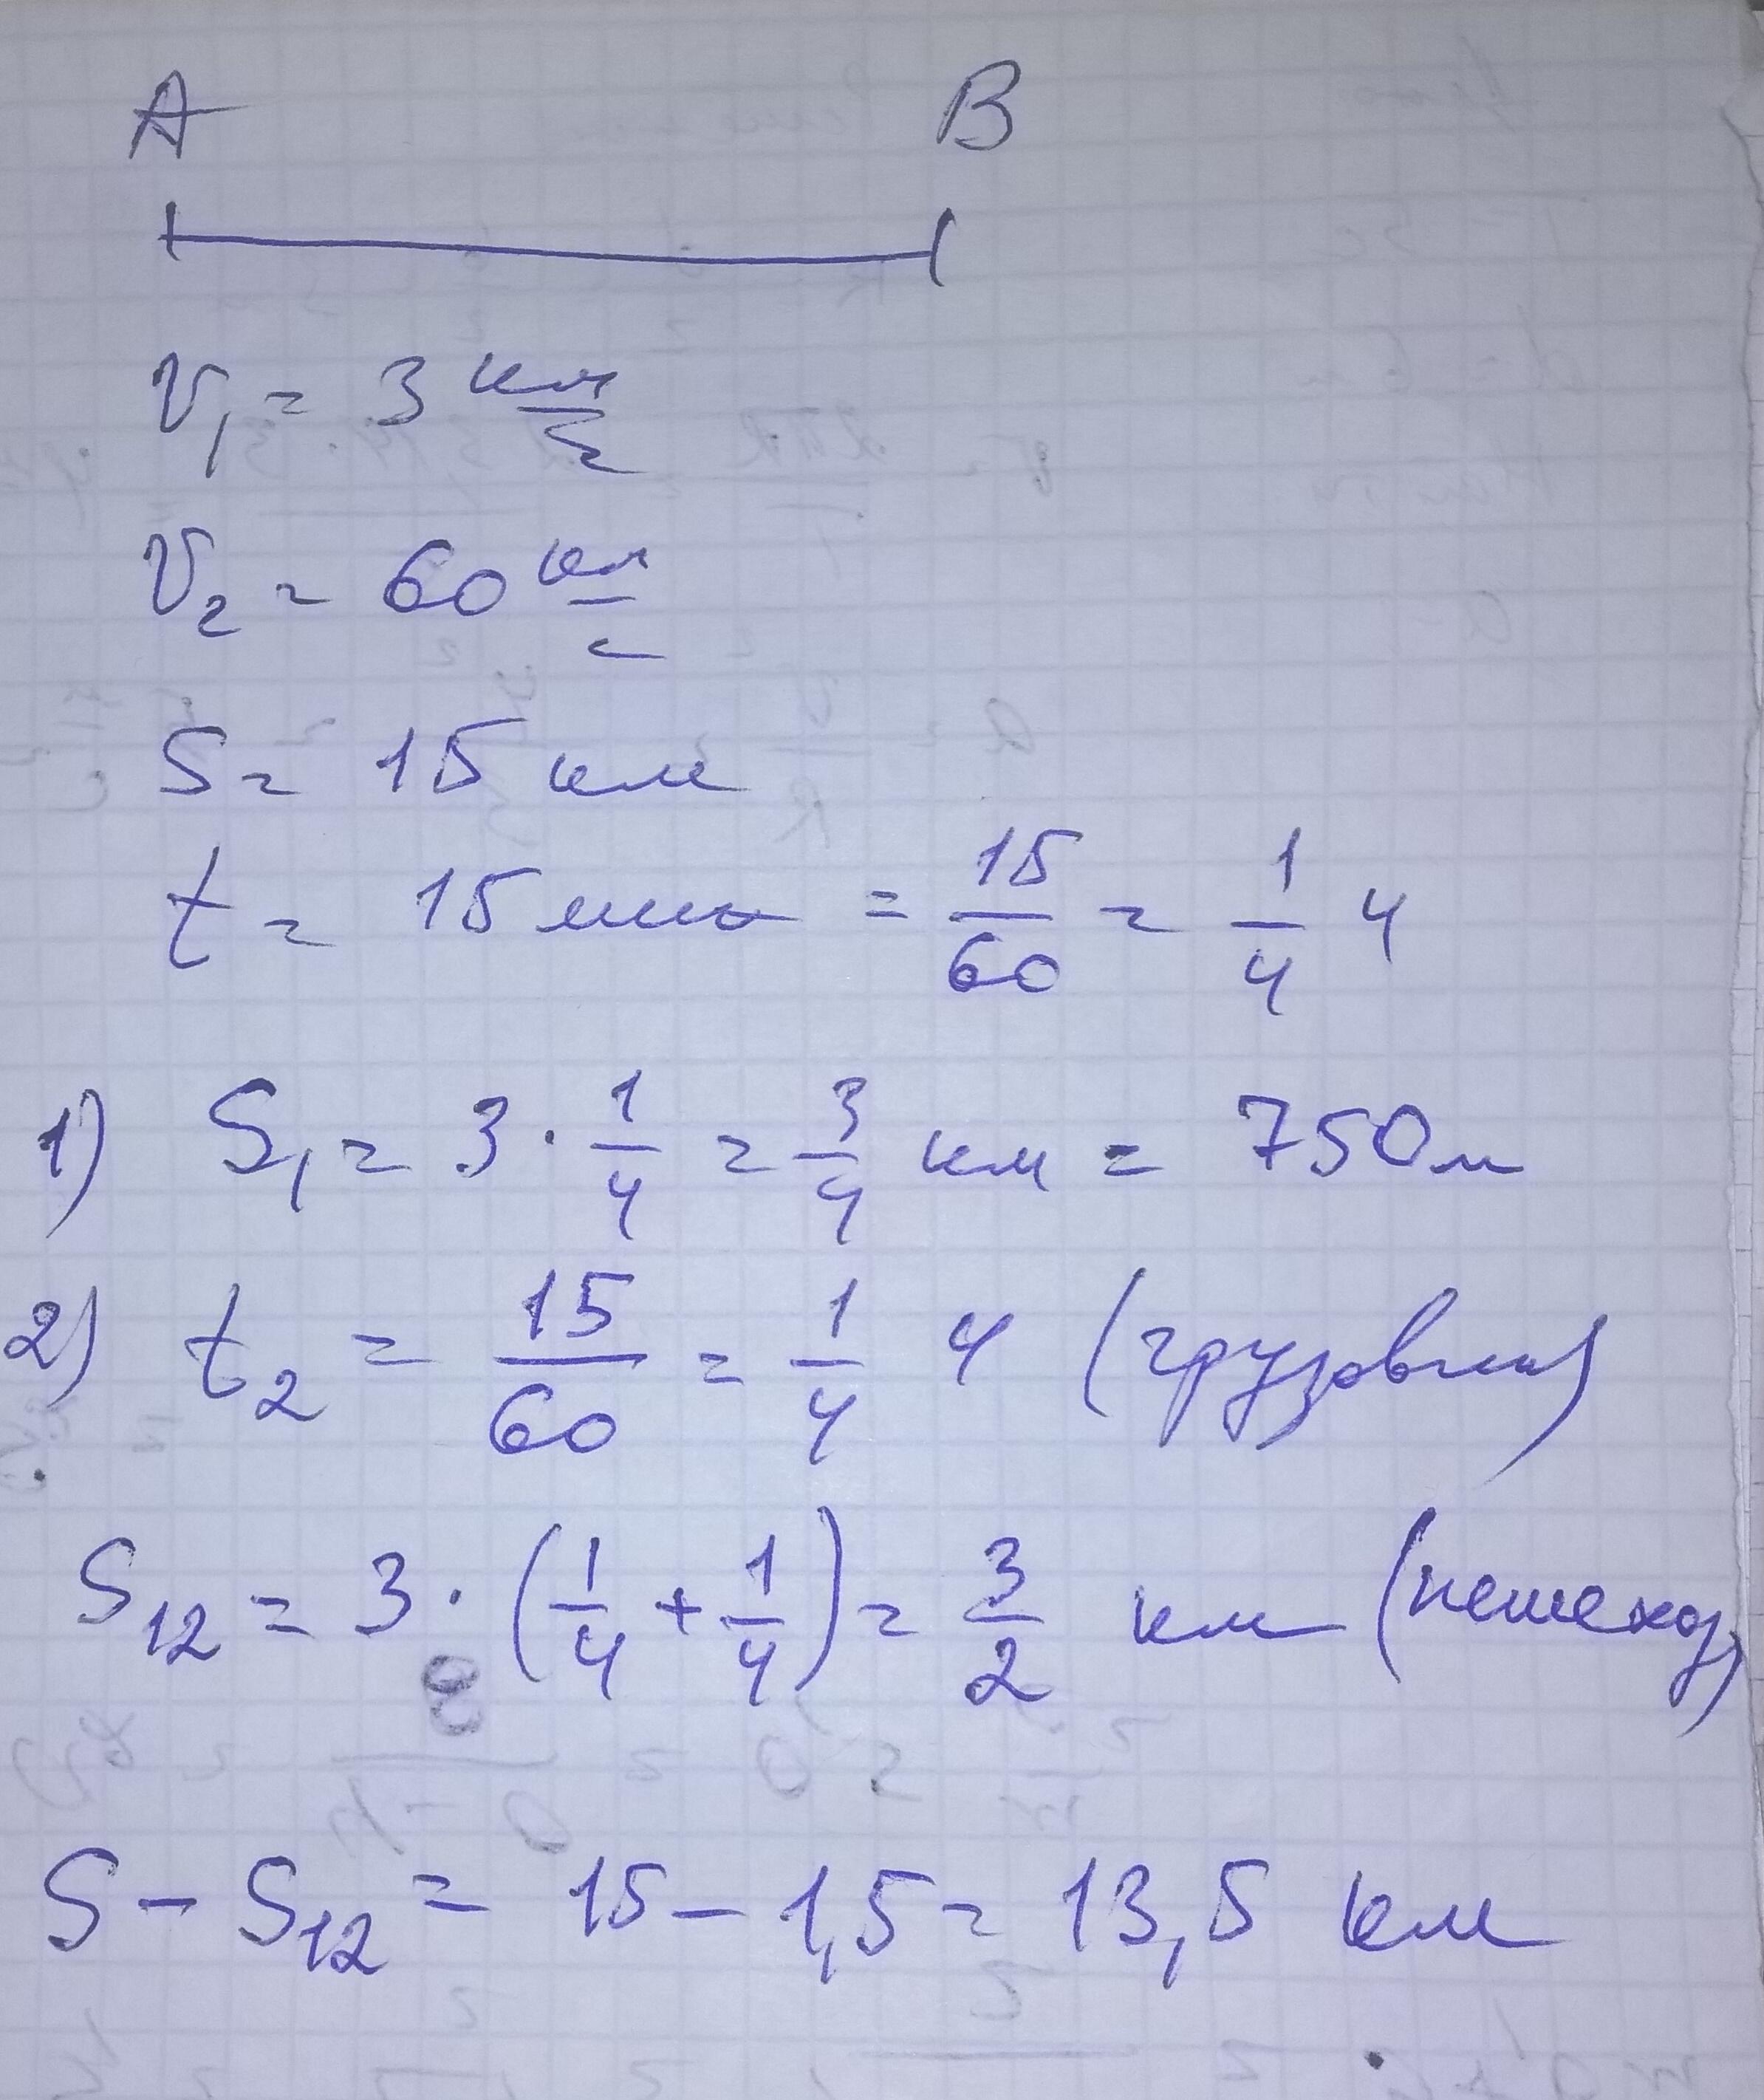 A B
V₁ = 3 км/г
V₂ = 60 км/г
S = 15 км
t = 15 мин = 15/60 = 1/4 ч
1) S₁ = 3 · 1/4 = 3/4 км = 750 м
2) t₂ = 15/60 = 1/4 ч (грузовик)
S₁₂ = 3 · (1/4 + 1/4) = 3/2 км (пешеход)
S - S₁₂ = 15 - 1,5 = 13,5 км